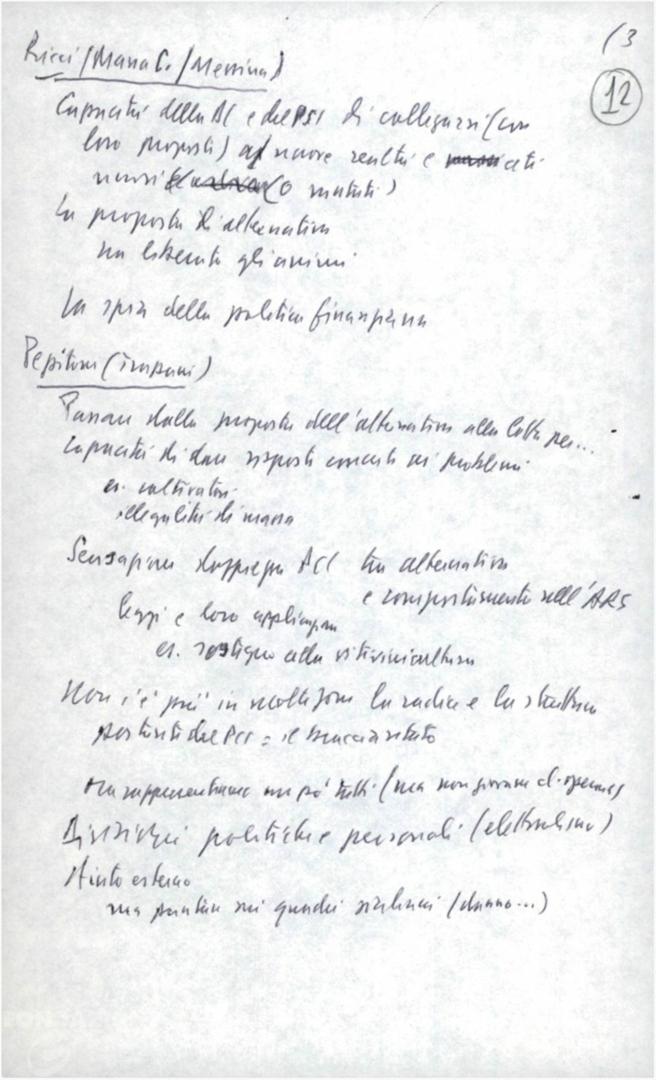 (3
12
Ricci / Maria C. / Messina)
Capacità della DC e del PSI di collegarsi (con
loro proposte) a nuove realtà e ceti
nuovi (o mutati)
La proposta di alternativa
ha liberato gli animi
La spia della politica finanziaria
Pepitone (Trapani)
Passare dalla proposta dell'alternativa alla lotta per...
Capacità di dare risposte concrete ai problemi
es. coltivatori
illegalità di massa
Sensazione tra alternativa
e comportamento nell'ARS
leggi e loro applicazione
es. sostegno alla vitivinicoltura
Non c'è più in molte zone la radice e la struttura
del PCI = il bracciantato
Ma rappresentiamo un po' tutti (ma non giovani di
Divisioni politiche e personali (elettoralismo)
Aiuto esterno
ma puntare sui quadri siciliani